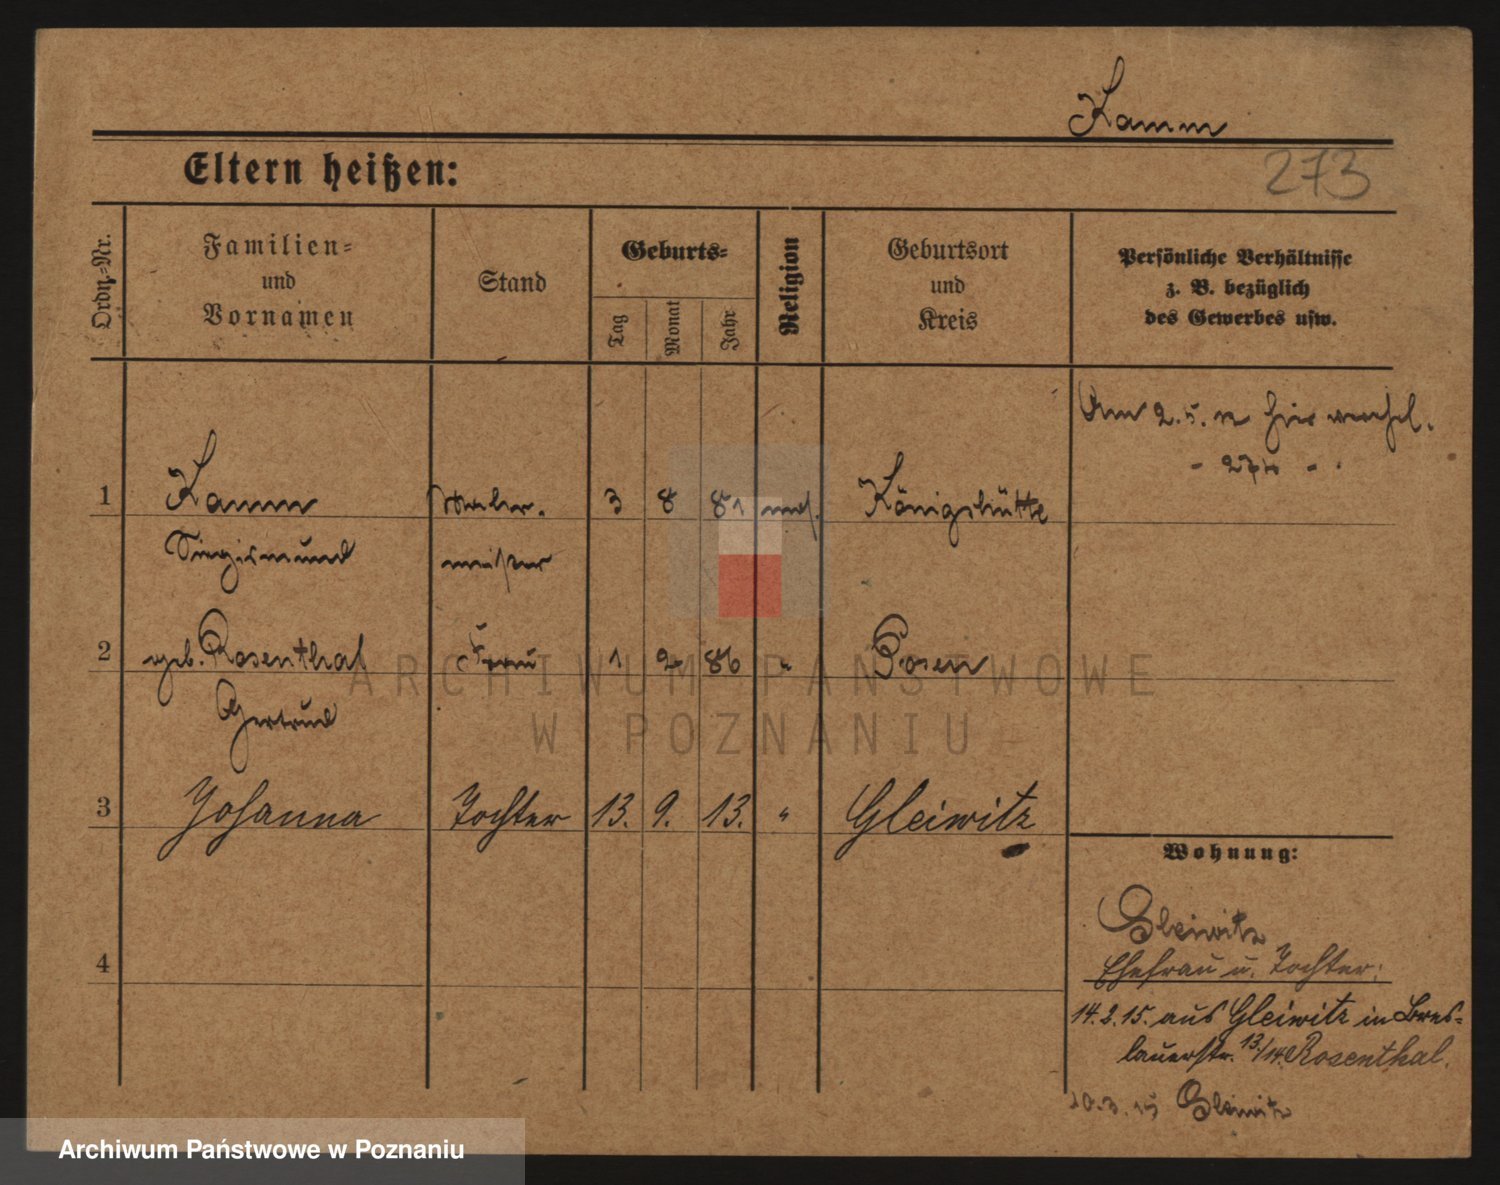 Kamm
Eltern heißen:
273
Ordn.-Nr.
Familien-
und
Vornamen
Stand
Geburts-
Tag
Monat
Jahr
Religion
Geburtsort
und
Kreis
Persönliche Verhältnisse
z. B. bezüglich
des Gewerbes usw.
Am 2.5. hier
1 Kamm 3 8 81 mos. Königshütte
Siegismund meister
2 geb. Rosenthal Frau 1 2 86 " Posen
Gertrud
3 Johanna Tochter 13. 9. 13. " Gleiwitz
Wohnung:
4
Gleiwitz
Ehefrau u. Tochter:
14.2.15. aus Gleiwitz in Bres-
lauerstr. 13/14 Rosenthal.
20.3.15 Gleiwitz
ARCHIWUM PAŃSTWOWE
W POZNANIU
Archiwum Państwowe w Poznaniu